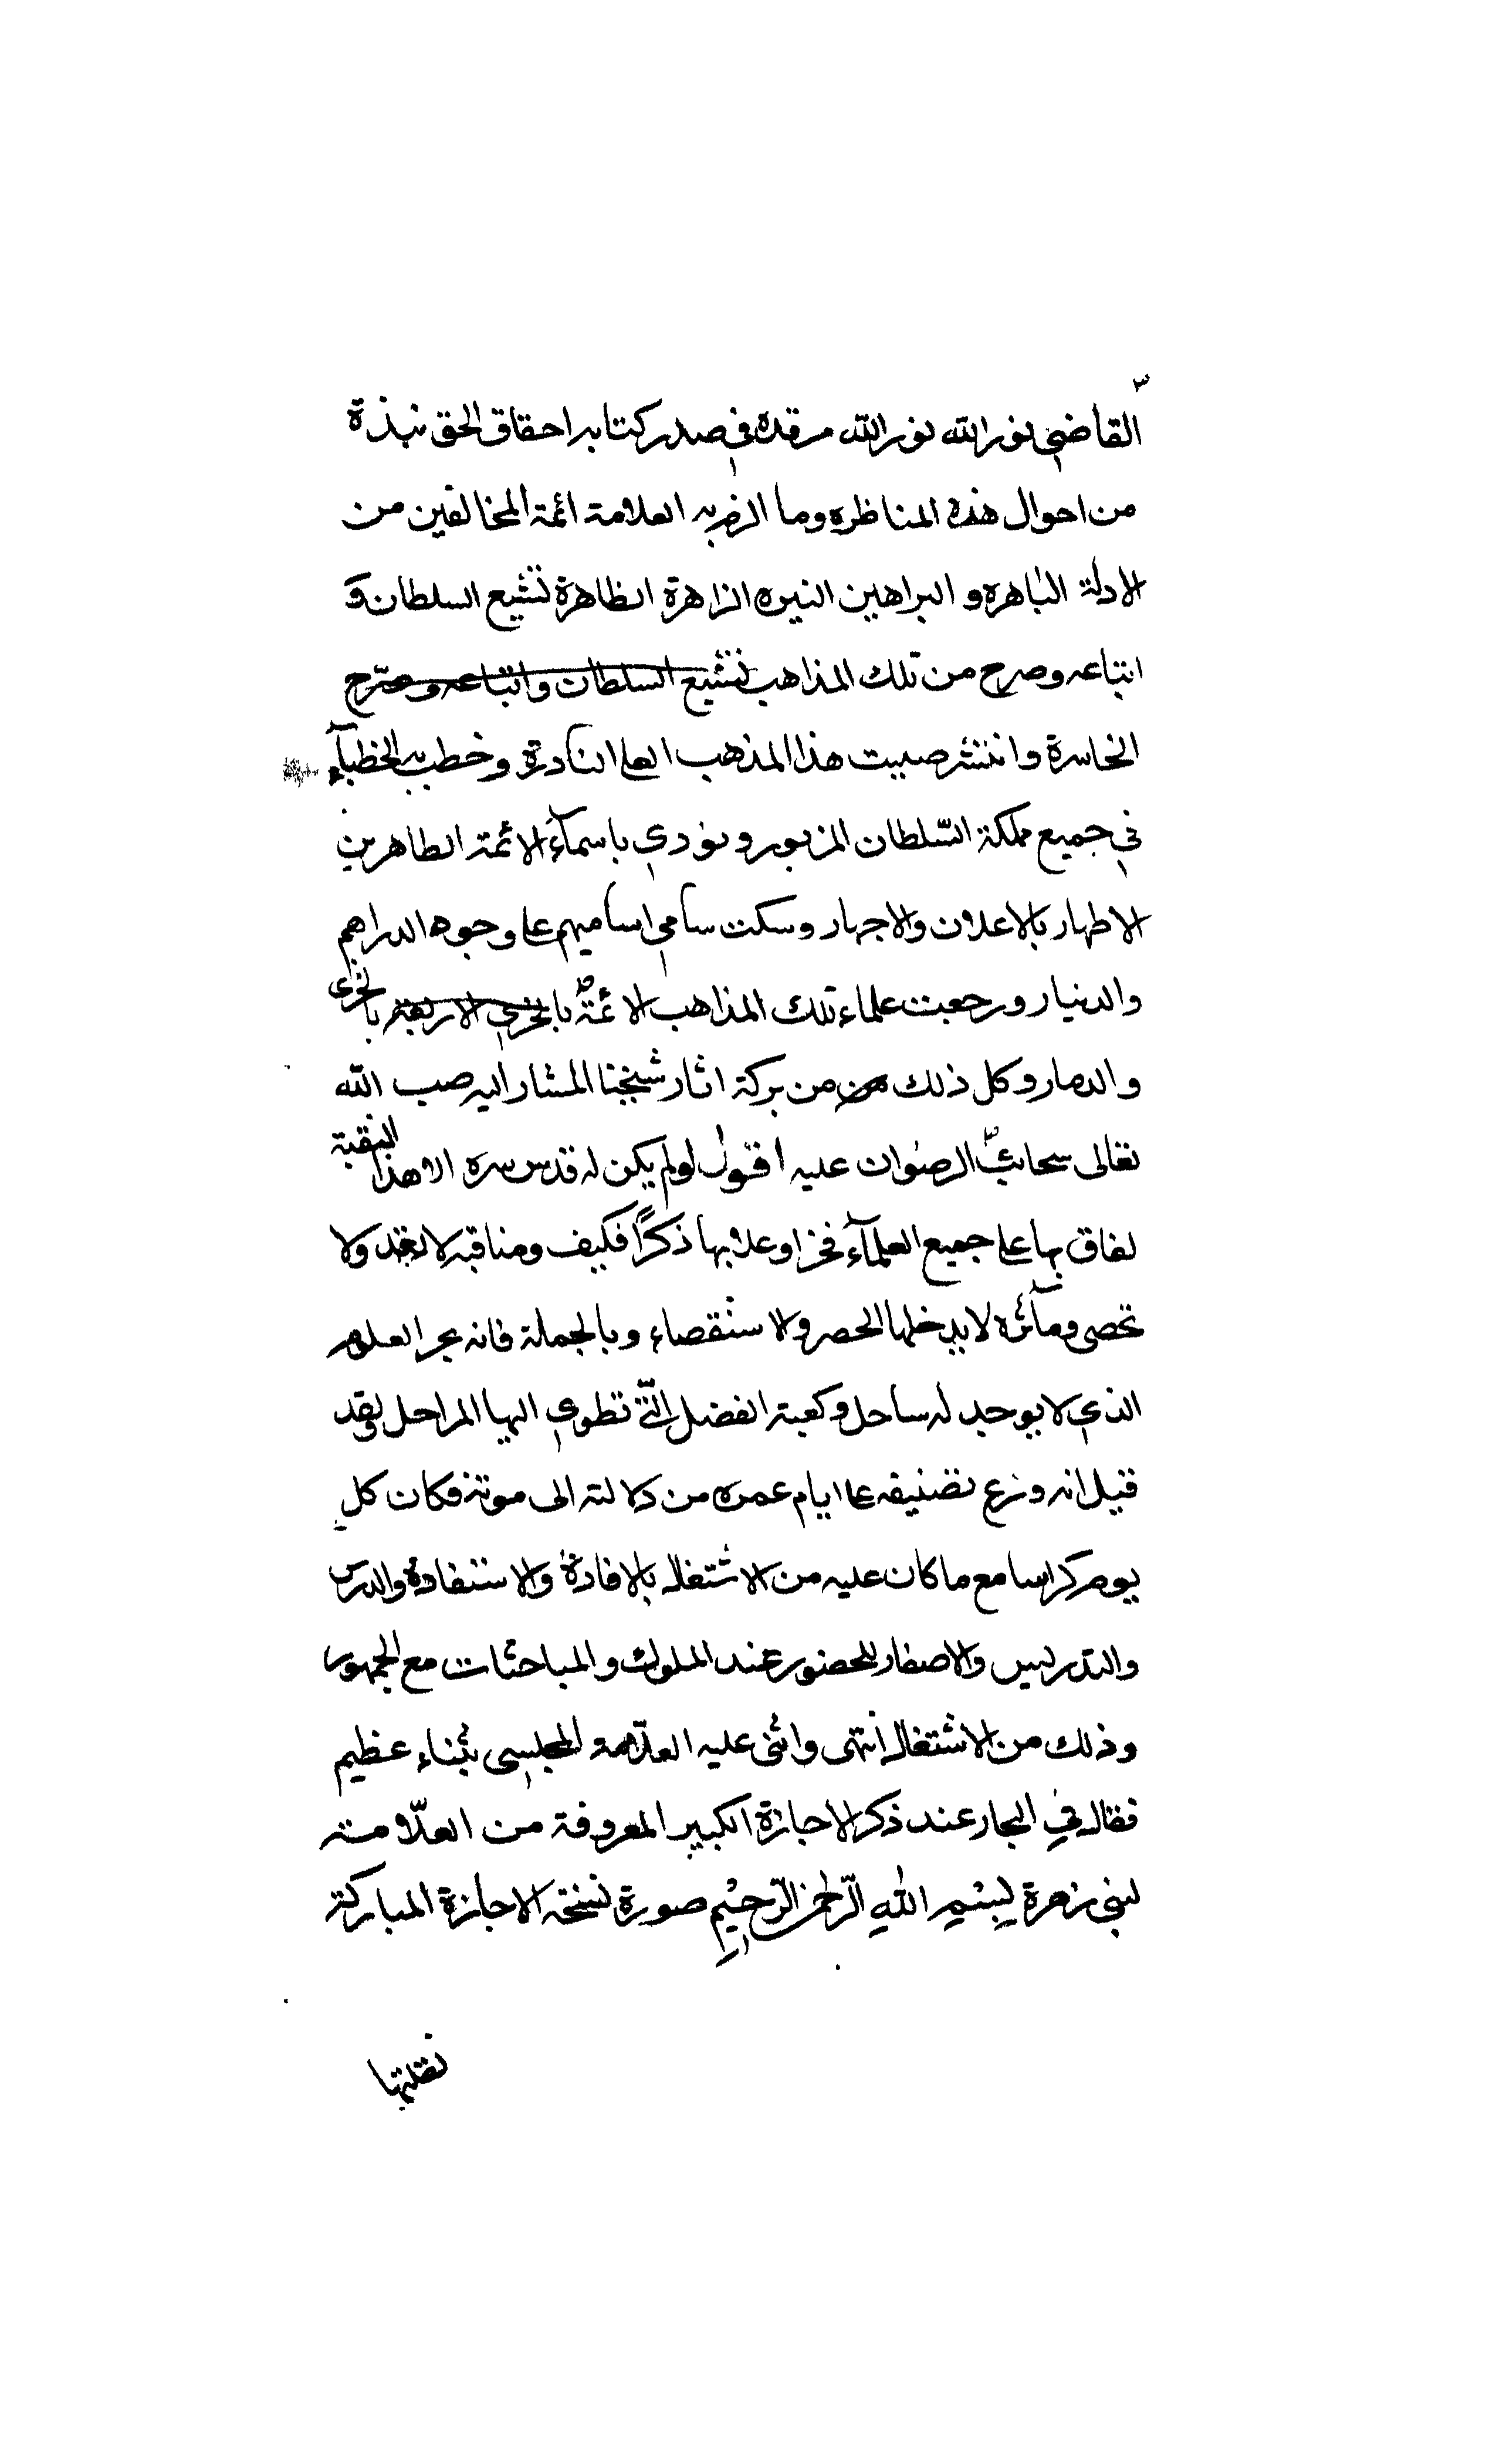 القاضي نور الله نور الله مرقده في صدر كتابه احقاق الحق نبذة
من احوال هذه المناظره وما الزم به العلامة ائمة المخالفين من
الادلة الباهره و البراهين النيره الزاهرة الظاهرة تشيع السلطان و
اتباعه وصرح من تلك المذاهب فتشيع السلطان واتباعه وصرّح
الخاسرة وانتشر صيت هذا المذهب العلى النادرة وخطب به الخطبآء
في جميع مملكة السّلطان المزبور ونودي باسمآء الائمة الطاهرين
الاطهار بالاعلان والاجهار وسكت سامي اساميهم على وجوه الدراهم
والدنيار ورجعت علماء تلك المذاهب الائمة بالخزي الاربعة بالخزى
والدمار وكل ذلك من من بركة اثار شيخنا المشار اليه صب الله
تعالى سحائب الرضوان عليه اقول لولم يكن له قدس سره الا هذا المنقبة
لفاق بها على جميع العلمآء فخرا وعلا بها ذكرًا فكيف ومناقبه لا تعد ولا
تحصى ومآثره لا يدخلها الحصر ولا ستقصاء وبالجملة فانه بحر العلوم
الذي لا يوجد له ساحل وكعبة الفضل الّتي تطوي اليها المراحل ولقد
قيل انه وزع تصنيفه على ايام عمره من ولادته الى موته فكان كل
يوم كراسا مع ما كان عليه من الاشتغال بالافادة والاستفادة والدرس
والتدريس والاصفار للحضور عند الملوك والمباحثات مع الجمهور
وذلك من الاشتغال انتهى واثنى عليه العلّامة المجلسي بثناء عظيم
فقال في البحار عند ذكر الاجازة الكبير المعروفة من العلّامة
لبني زهرة بِسْمِ اللهِ الرّحمٰن الرّحِيْمِ صورة نسخة الاجازة المباركة
نقلتها